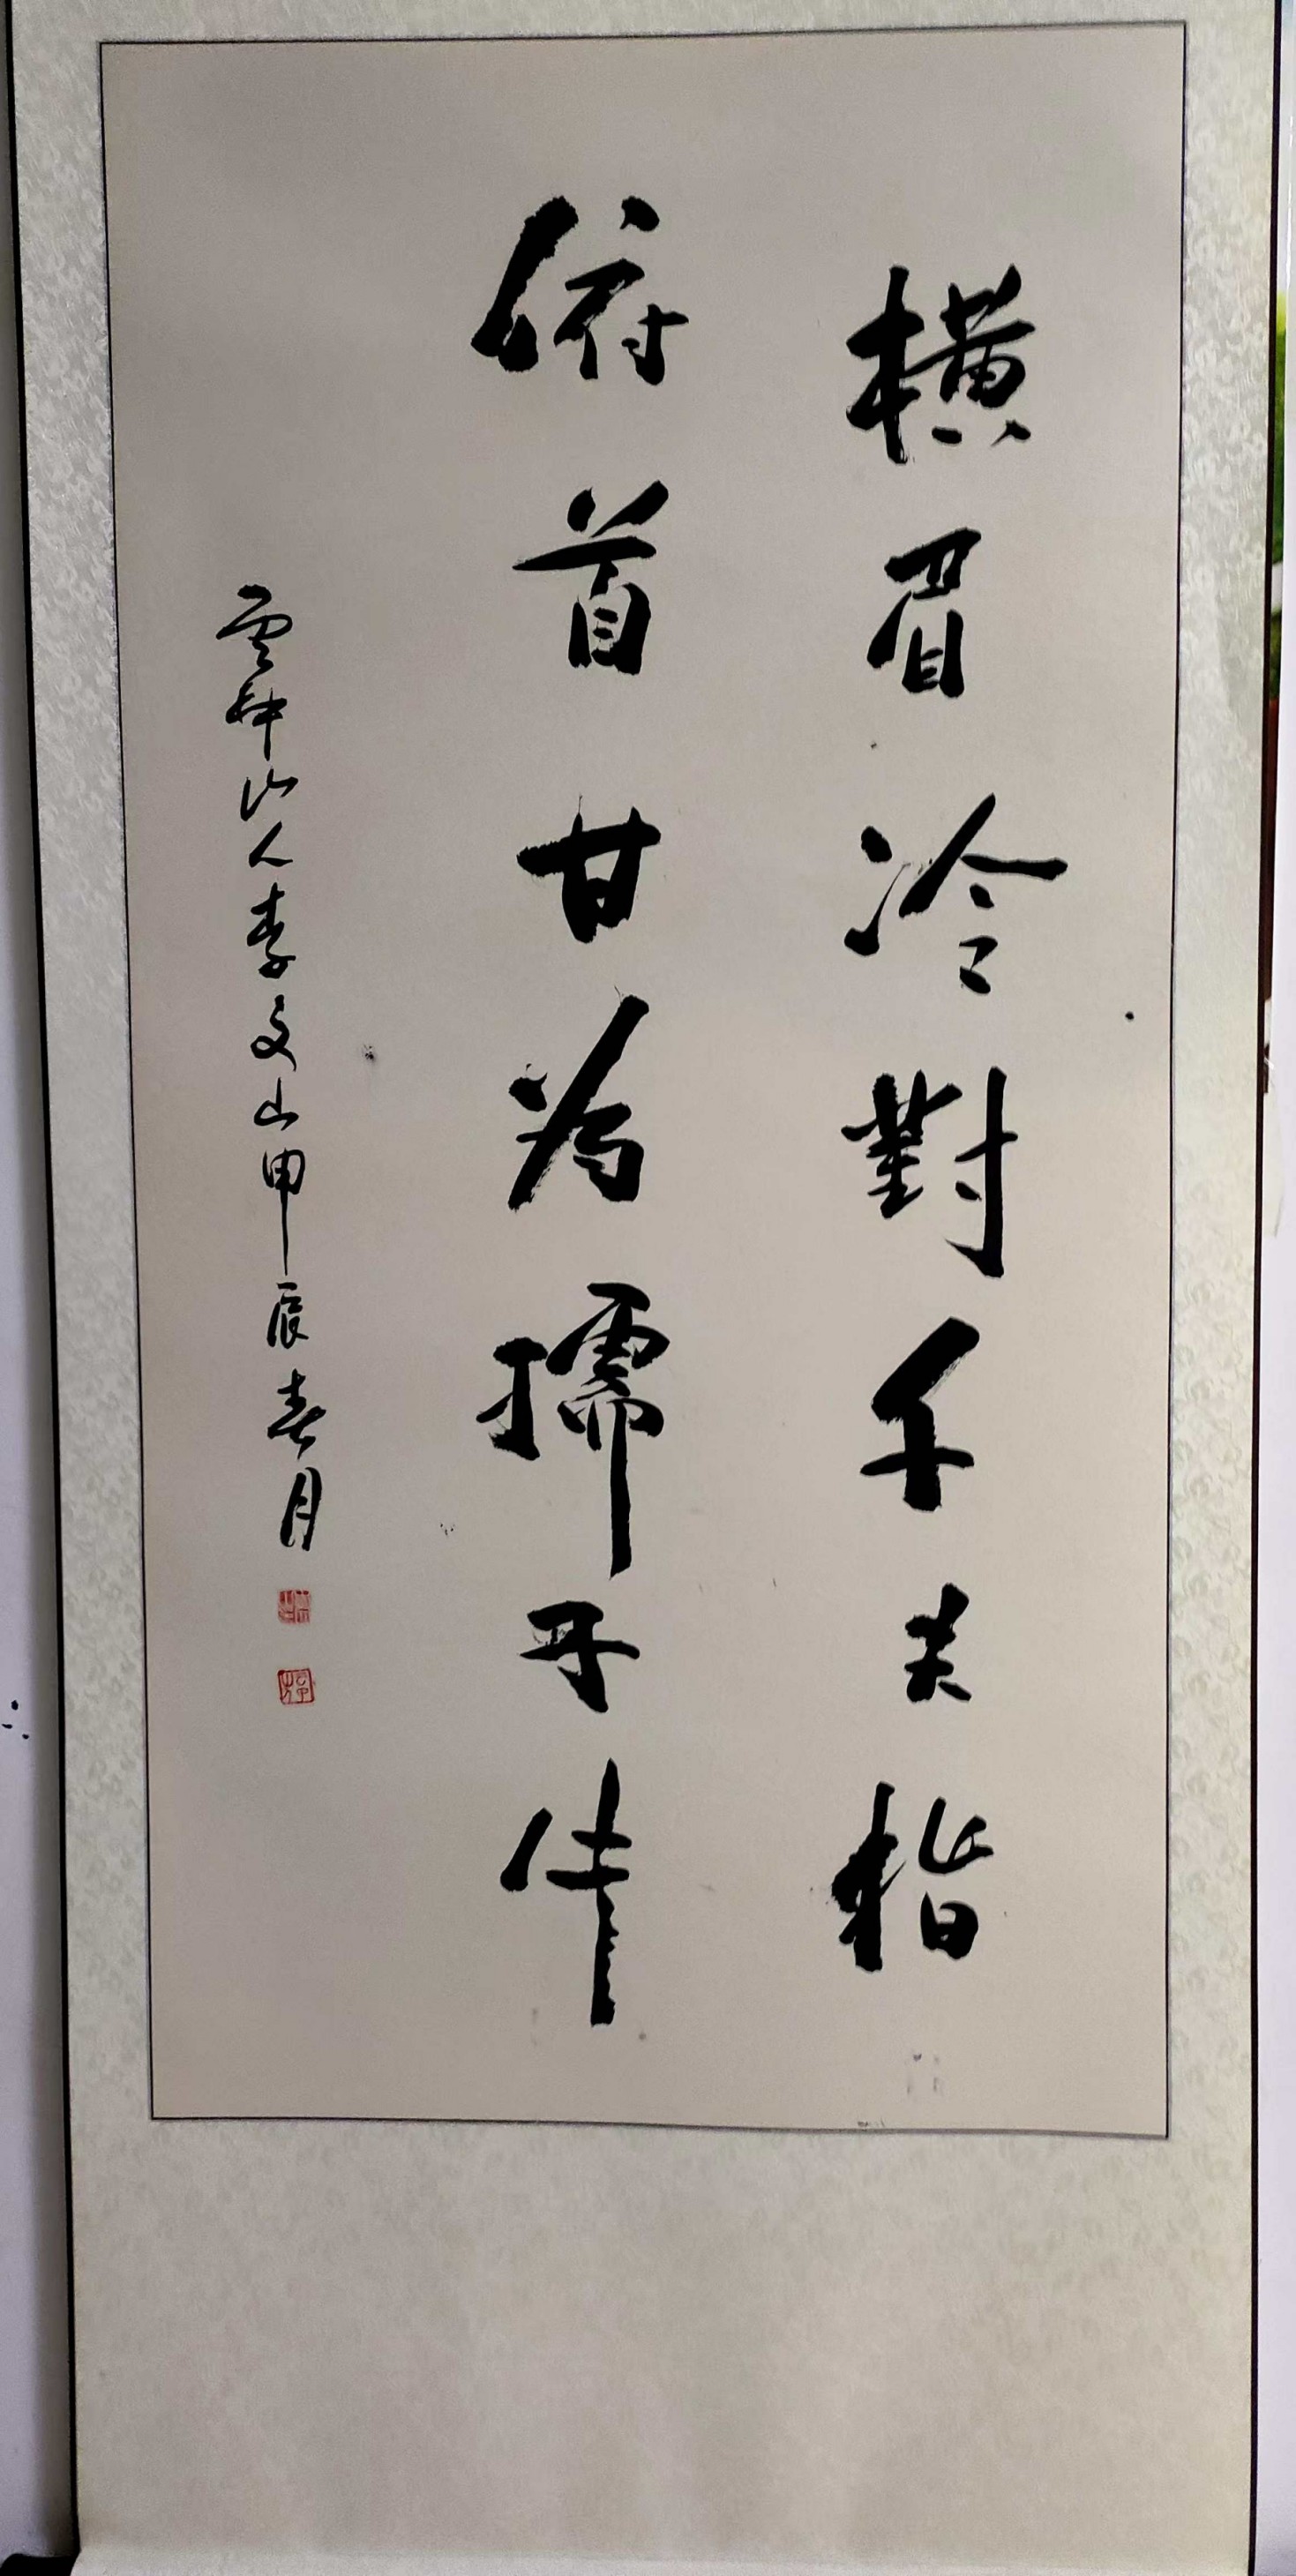 橫眉冷對千夫指
俯首甘為孺子牛
山人李文山甲辰春月